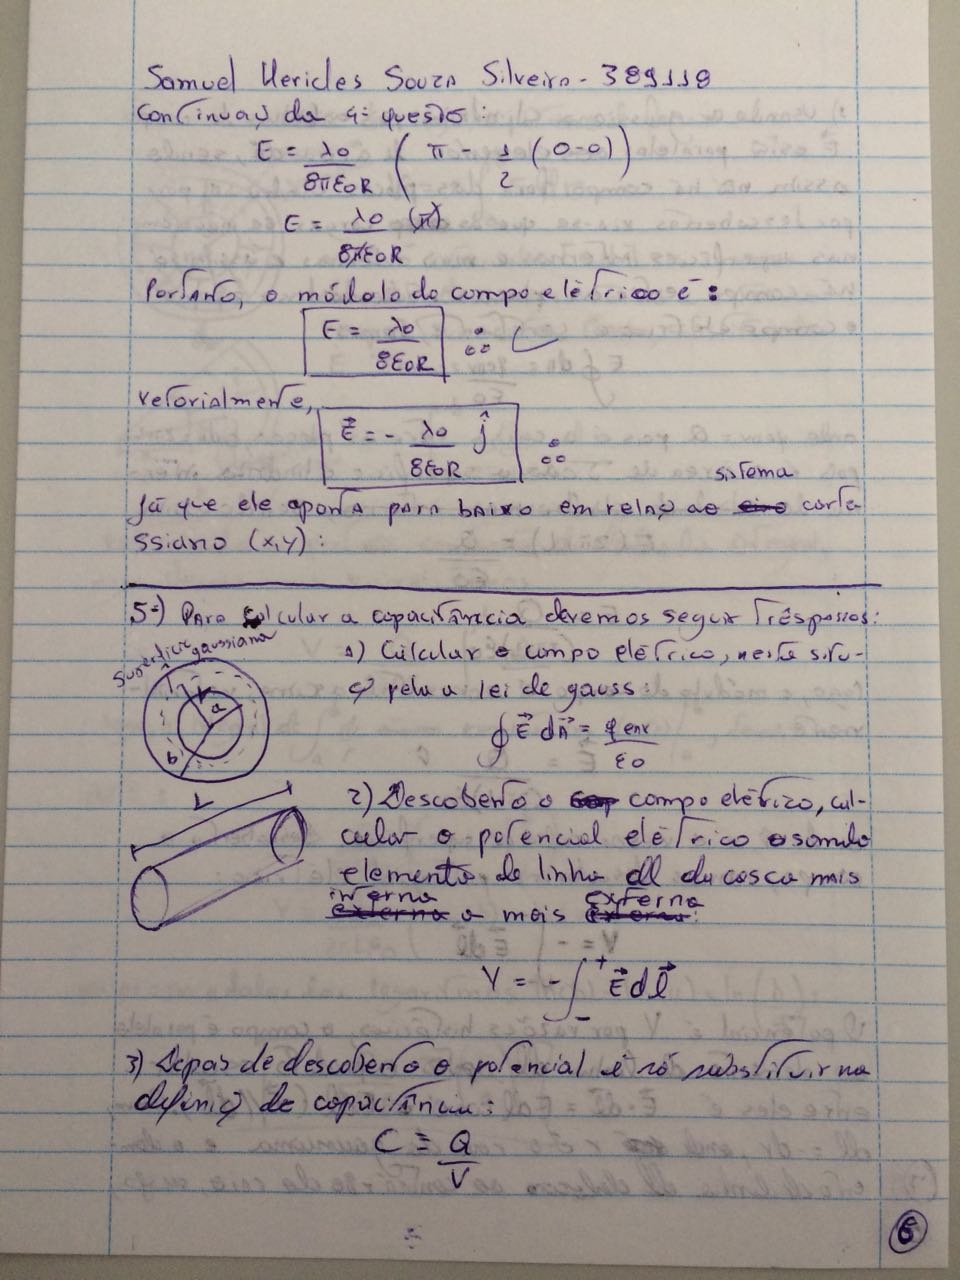 Samuel Hericles Souza Silveira - 389118
Continuaç da 4ª questão:
E = λ0/8πε0R ( π - 1/2 (0-0) )
E = λ0/8πε0R (π)
Portanto, o módulo do campo elétrico é:
E = λ0/8ε0R
Vetorialmente,
E⃗ = - λ0/8ε0R ĵ
sistema
Já que ele aponta para baixo em relaç ao eixo carte
ssiano (x,y):
5ª) Para calcular a capacitância devemos seguir três passos:
Superfície gaussiana
1) Calcular o campo elétrico, nesta situa-
ç pela a lei de gauss:
a
b
∮ E⃗ dA⃗ = q env/ε0
L
2) Descoberto o campo elétrico, cal-
cular o potencial elétrico usando
elemento de linha dl da casca mais
interna a mais externa:
V = -∫₋⁺ E⃗ dl⃗
3) Depois de descoberto o potencial é só substituir na
definiç de capacitância:
C ≡ Q/V
6